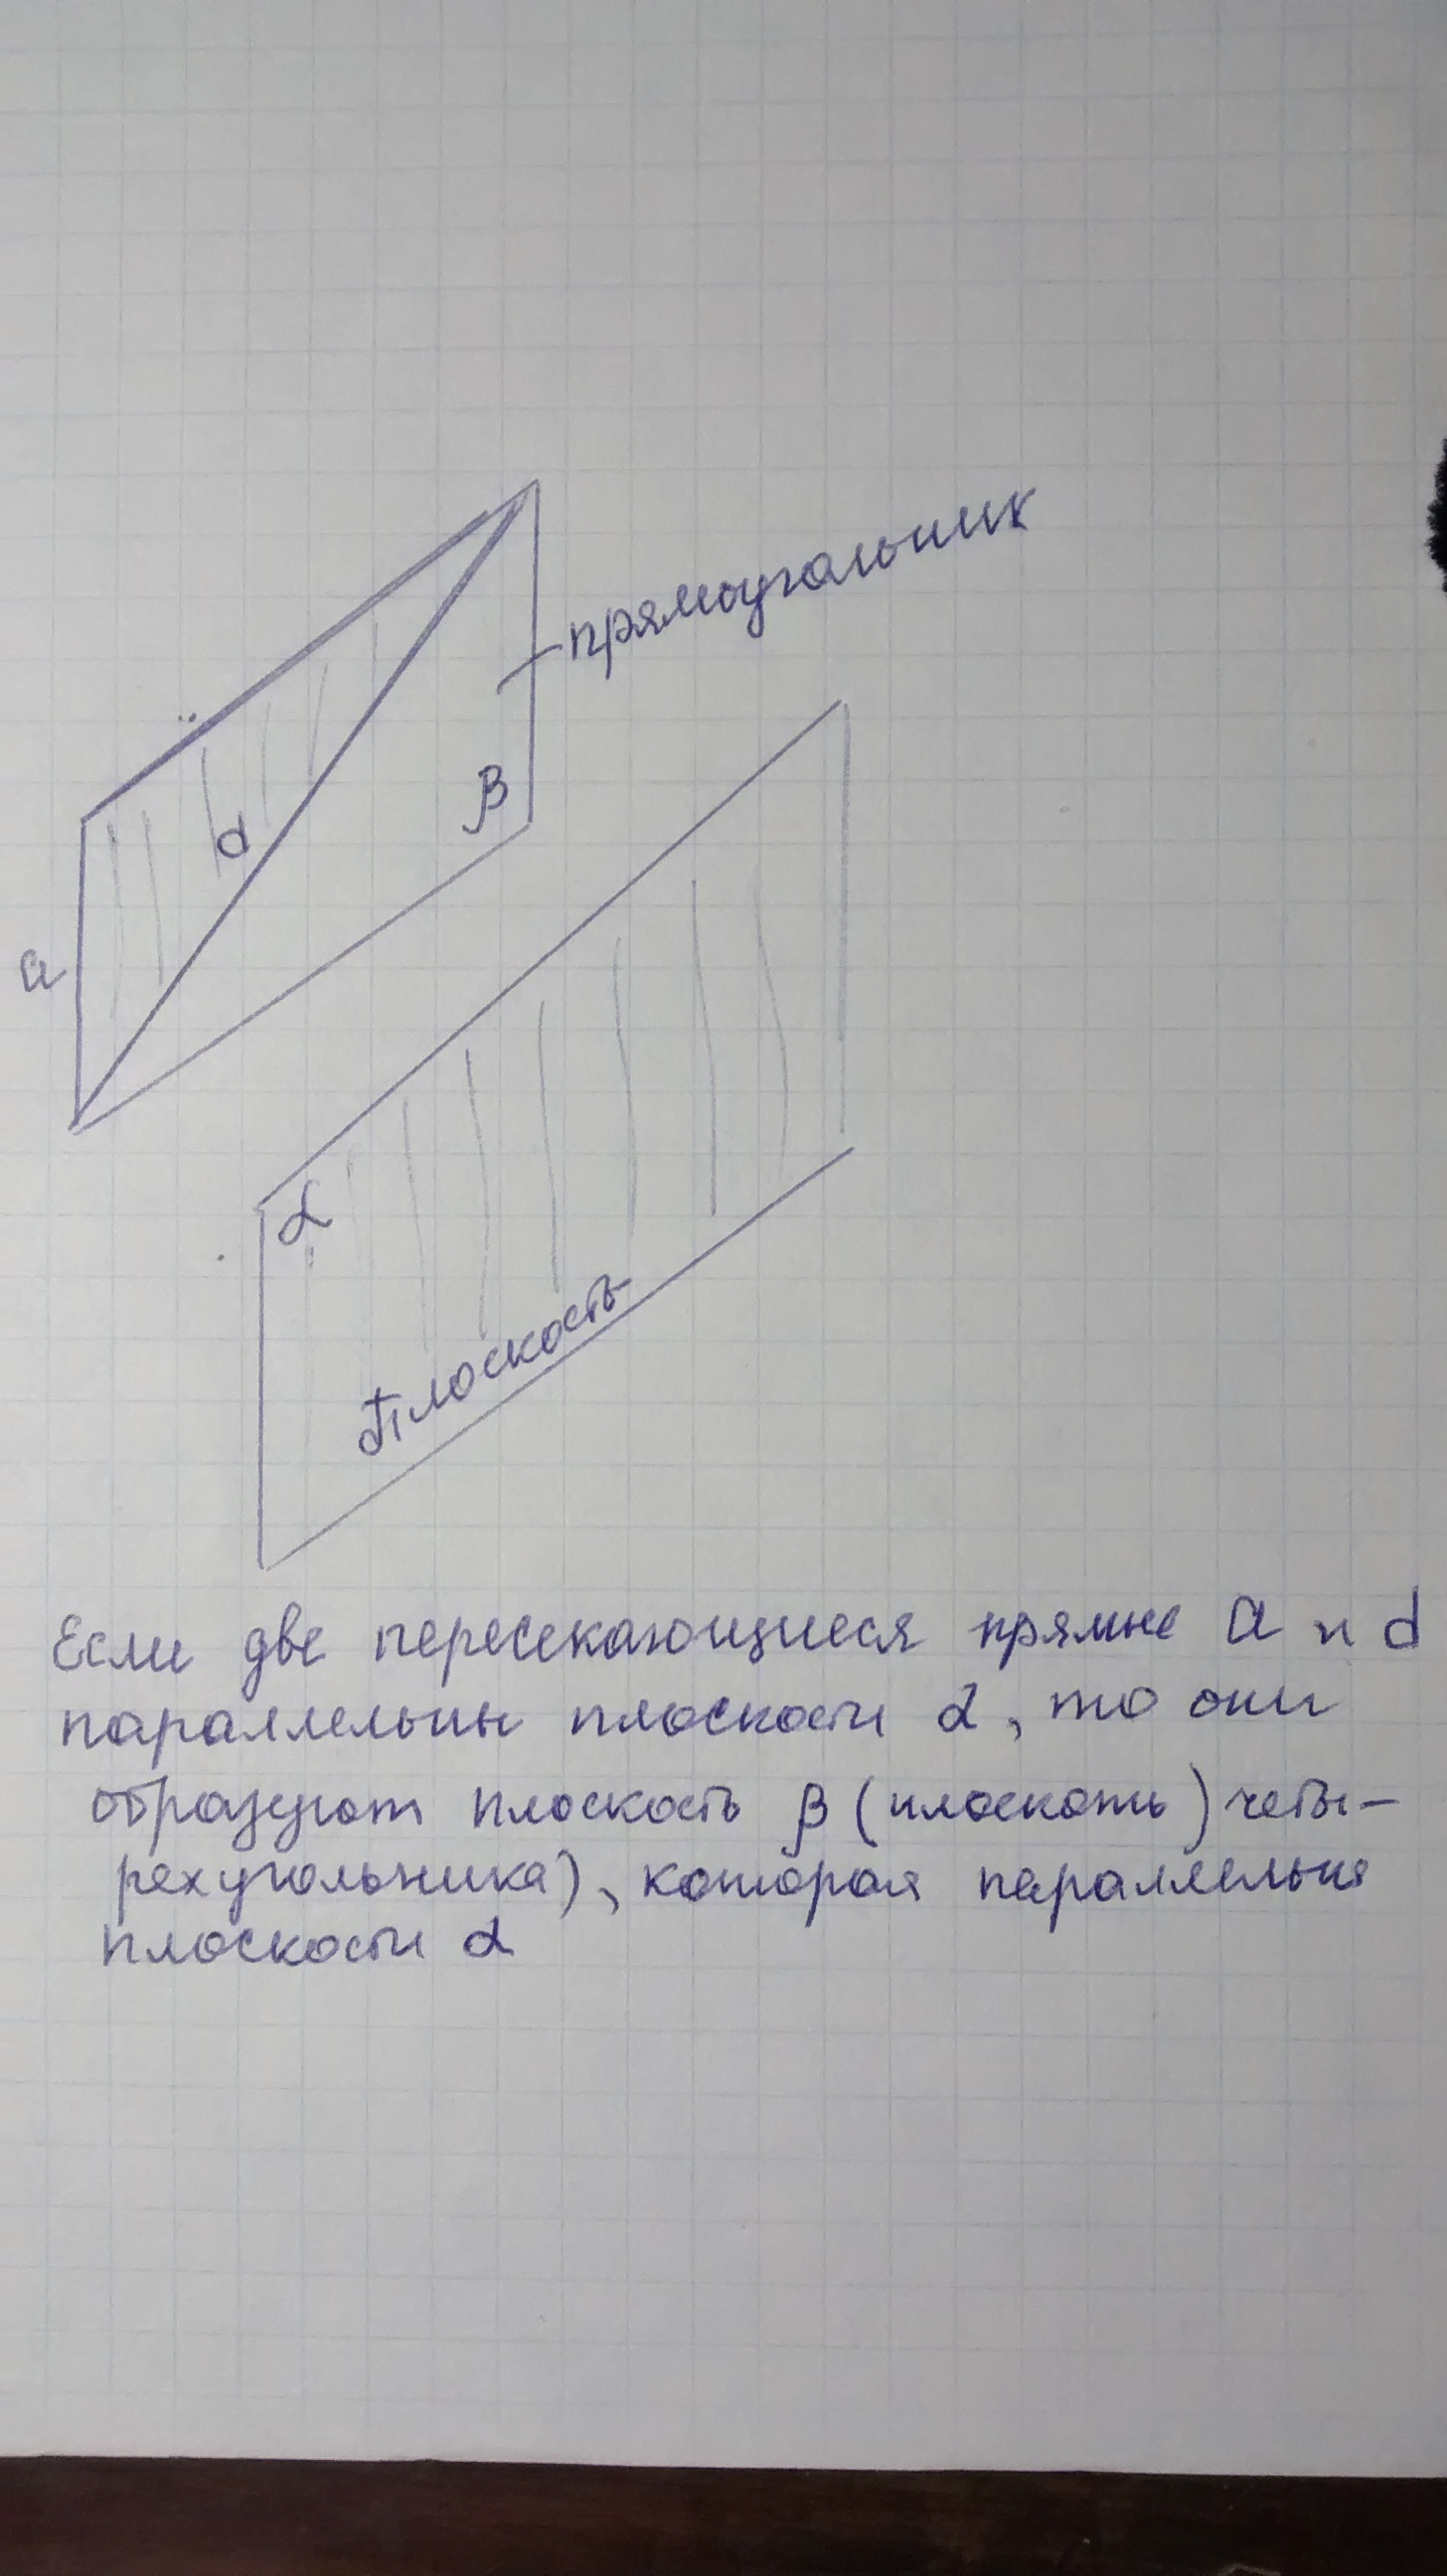 прямоугольник
β
d
a
α
Плоскость
Если две пересекающиеся прямые a и d
параллельны плоскости α, то они
образуют плоскость β (плоскоть) четы-
рехугольника), которая параллельна
плоскости α